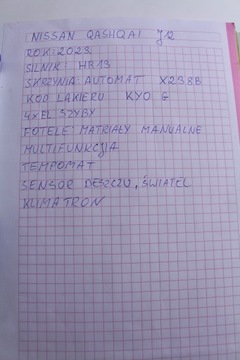 NISSAN QASHQAI J12
ROK: 2023
SILNIK: HR13
SKRZYNIA: AUTOMAT X238B
KOD LAKIERU KYO G
4XEL SZYBY
FOTELE: MATRIAŁY MANUALNE
MULTIFUNKCJA
TEMPOMAT
SENSOR DESZCZU, ŚWIATEŁ
KLIMATRON